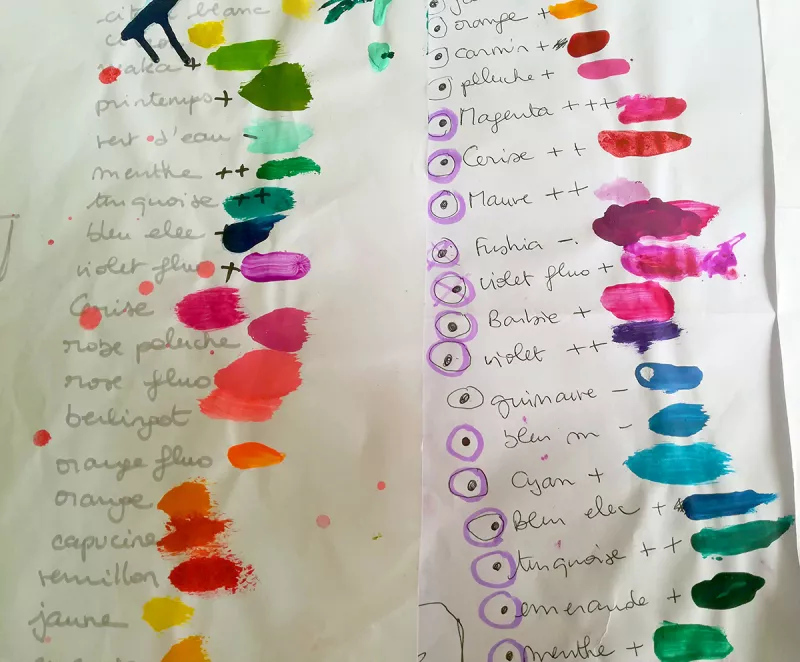 blanc
printemps +
vert d'eau -
menthe ++
turquoise ++
bleu elec +
violet fluo +
Cerise
rose peluche
rose fluo
berlingot
orange fluo
orange
capucine
vermillon
jaune
orange +
carmin +
peluche +
Magenta +++
Cerise ++
Mauve ++
Fushia -.
violet fluo +
Barbie +
violet ++
-
bleu m -
Cyan +
bleu elec +
turquoise ++
emeraude +
menthe +